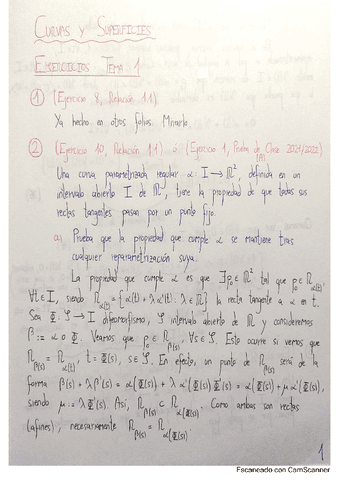 CURVAS Y SUPERFICIES
EJERCICIOS TEMA 1
① (Ejercicio 8, Relación 1.1)
Ya hecho en otros folios. Mirarlo.
② (Ejercicio 10, Relación 1.1) ó (Ejercicio 1, Prueba de Clase 2021/2022) (A)
Una curva parametrizada regular α: I → ℝ², definida en un
intervalo abierto I de ℝ, tiene la propiedad de que todas sus
rectas tangentes pasan por un punto fijo.
a) Prueba que la propiedad que cumple α se mantiene tras
cualquier reparametrización suya.
La propiedad que cumple α es que ∃p₀ ∈ ℝ² tal que p₀ ∈ R_α(t),
∀t ∈ I, siendo R_α(t) = {α(t) + λα'(t): λ ∈ ℝ} la recta tangente a α en t.
Sea Φ: J → I difeomorfismo, J intervalo abierto de ℝ y consideremos
β := α ∘ Φ. Veamos que p₀ ∈ R_β(s), ∀s ∈ J. Esto ocurre si vemos que
R_β(s) = R_α(t), t = Φ(s), s ∈ J. En efecto, un punto de R_β(s) será de la
forma β(s) + λβ'(s) = α(Φ(s)) + λ α'(Φ(s))Φ'(s) = α(Φ(s)) + μα'(Φ(s)),
siendo μ := λΦ'(s). Así, R_β(s) ⊂ R_α(Φ(s)). Como ambas son rectas
(afines), necesariamente R_β(s) = R_α(Φ(s)).
1
Escaneado con CamScanner